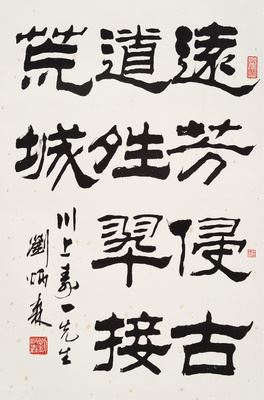 遠芳侵古
道夝翠接
荒城
川上寿一先生
劉炳森